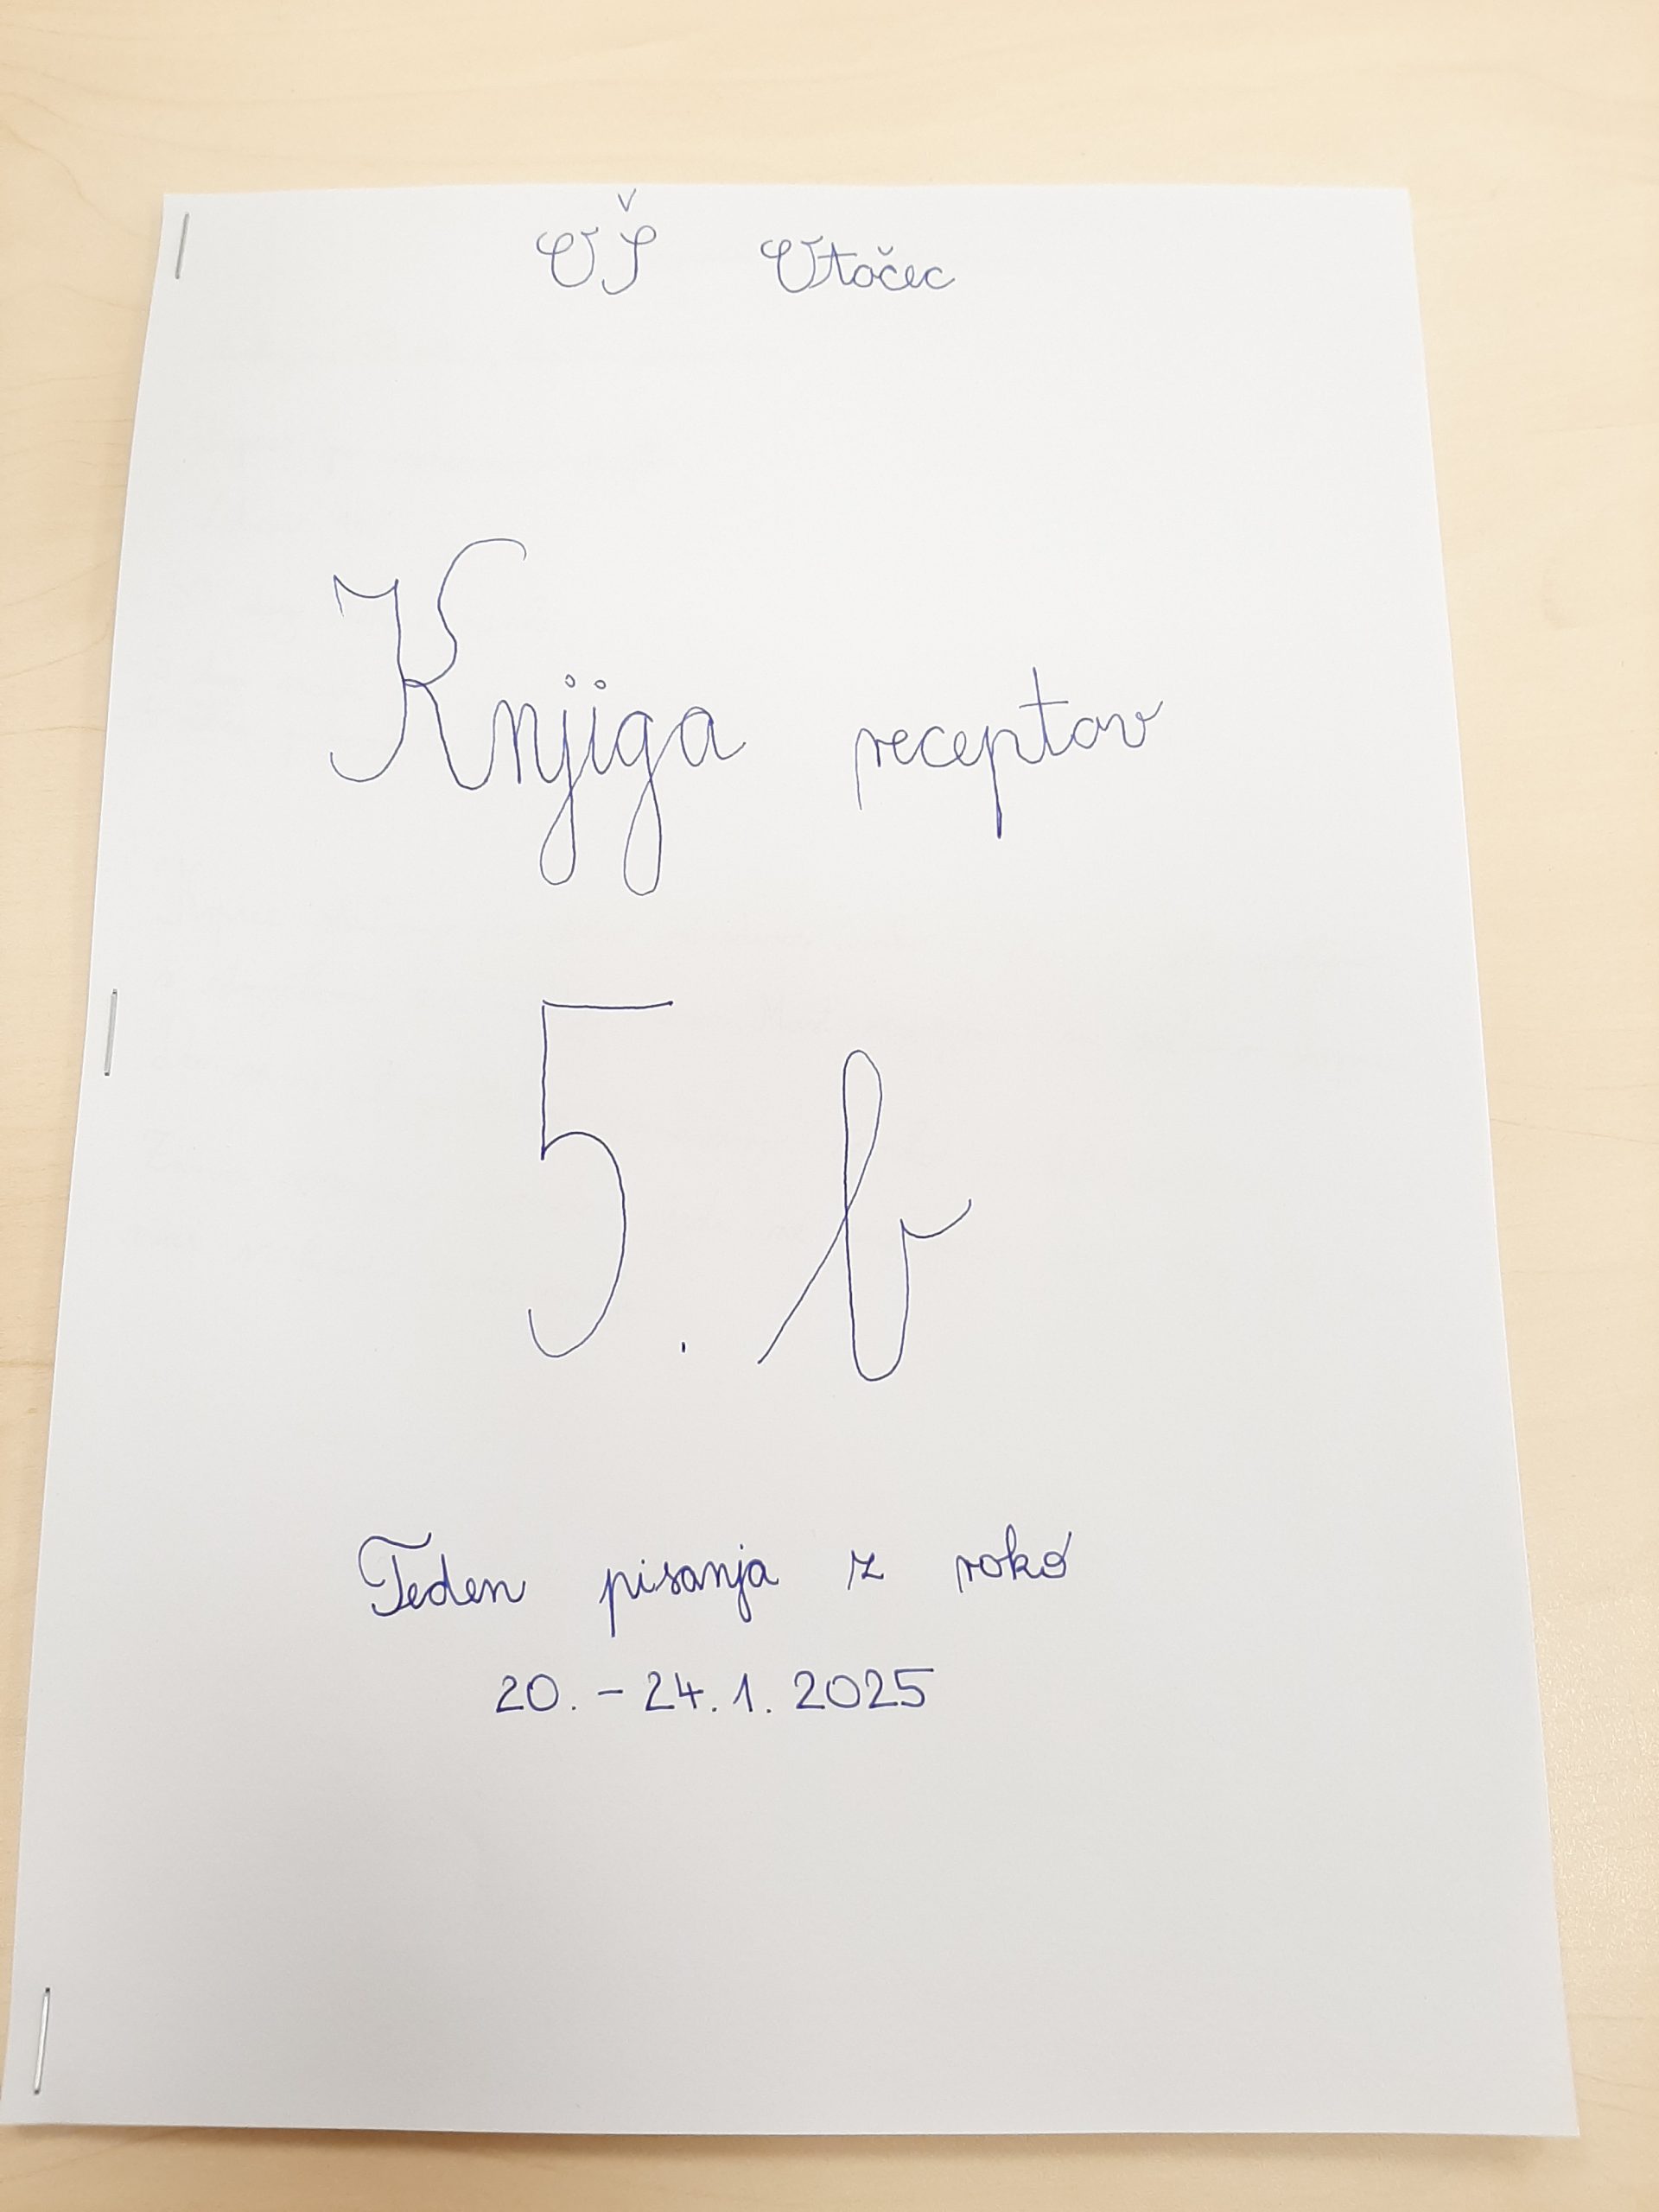 OŠ Otočec
Knjiga receptov
5. b
Teden pisanja z roko
20. - 24. 1. 2025